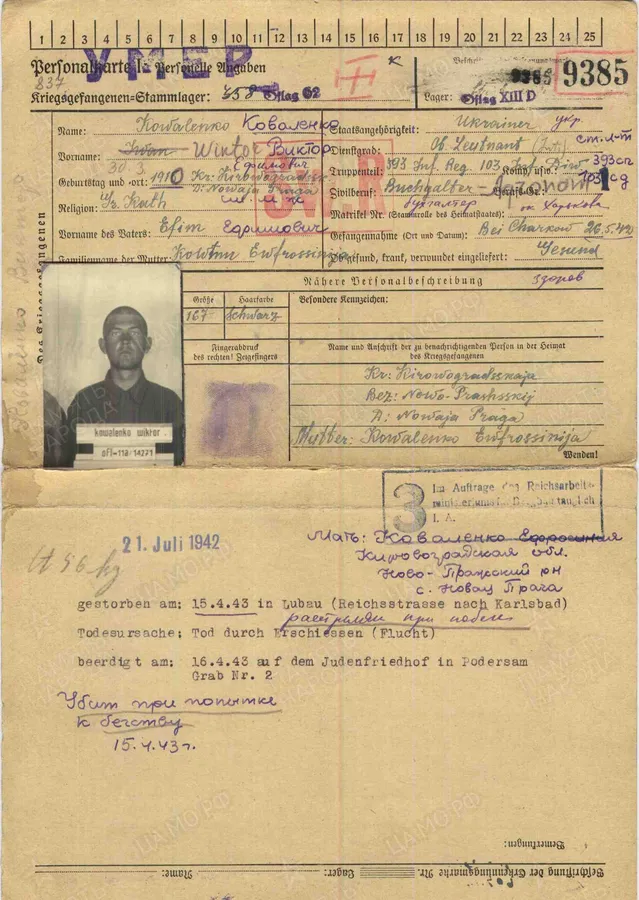 1 2 3 4 5 6 7 8 9 10 11 12 13 14 15 16 17 18 19 20 21 22 23 24 25
УМЕР
Personalkarte I: Personelle Angaben
837
Kriegsgefangenen-Stammlager: Oflag 62
III
Lager: Oflag XIII D
9385
9385
Name: Kowalenko Коваленко
Vorname: Iwan - Wiktor Виктор
Ефимович
Geburtstag und -ort: 30.3. 1910 Kr: Kirowogradska
D: Nowaja Praga
Religion: Gr. Kath
Vorname des Vaters: Efim Ефимович
Familienname der Mutter: Kowtun Ewfrossinija
Staatsangehörigkeit: Ukrainer укр.
Dienstgrad: Ob. Leutnant ст. л-т
Truppenteil: 393 Inf. Reg 103 Inf. Div 393 сп
103 сд
Zivilberuf: Buchhalter
бухгалтер
Matrikel Nr. (Stammrolle des Heimatstaates):
Gefangennahme (Ort und Datum): Bei Charkow 26.5.42
Ob gesund, krank, verwundet eingeliefert: Gesund
здоров
Des Kriegsgefangenen
Nähere Personalbeschreibung
Größe
Haarfarbe
Besondere Kennzeichen:
167
Schwarz
Fingerabdruck
des rechten! Zeigefingers
Name und Anschrift der zu benachrichtigenden Person in der Heimat
des Kriegsgefangenen
Kr: Kirowogradsskaja
Bez: Nowo-Prashsskij
D: Nowaja Praga
Mutter: Kowalenko Ewfrossinija
Wenden!
kowalenko wiktor
off-11a/14271
3
Im Auftrage des Reichsarbeits-
I. A.
21. Juli 1942
56 kg
Мать: Коваленко Ефросиния
Кировоградская обл.
Ново-Пражский рн
с. Новая Прага
gestorben am: 15.4.43 in Lubau (Reichsstrasse nach Karlsbad)
расстрелян при побеге
Todesursache: Tod durch Erschiessen (Flucht)
beerdigt am: 16.4.43 auf dem Judenfriedhof in Podersam
Grab Nr. 2
Убит при попытке
к бегству
15.4.43г.
Bemerkungen:
Beschriftung der Erkennungsmarke Nr.
Lager:
Name:
ЦАМО.РФ
ПАМЯТЬ
НАРОДА